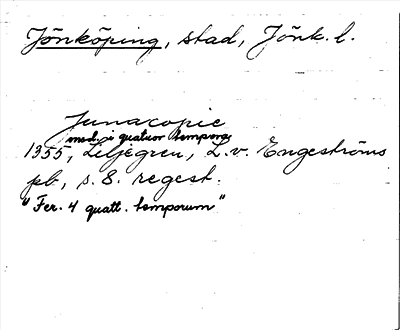 Jönköping, stad, Jönk. l.
Junacopie
med. i quatuor tempora
1355, Liljegren, L. v. Engeströms
pb, s. 8. regest.
"Fer. 4 quatt. temporum"